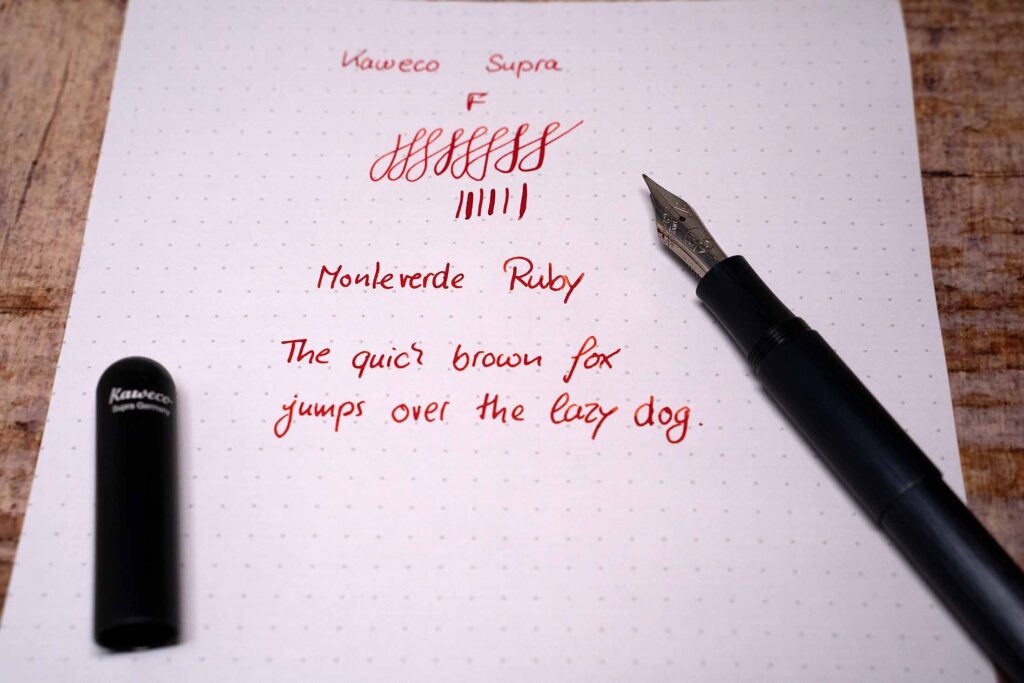 Kaweco Supra
F
Monteverde Ruby
The quick brown fox
jumps over the lazy dog.
Kaweco
Supra Germany